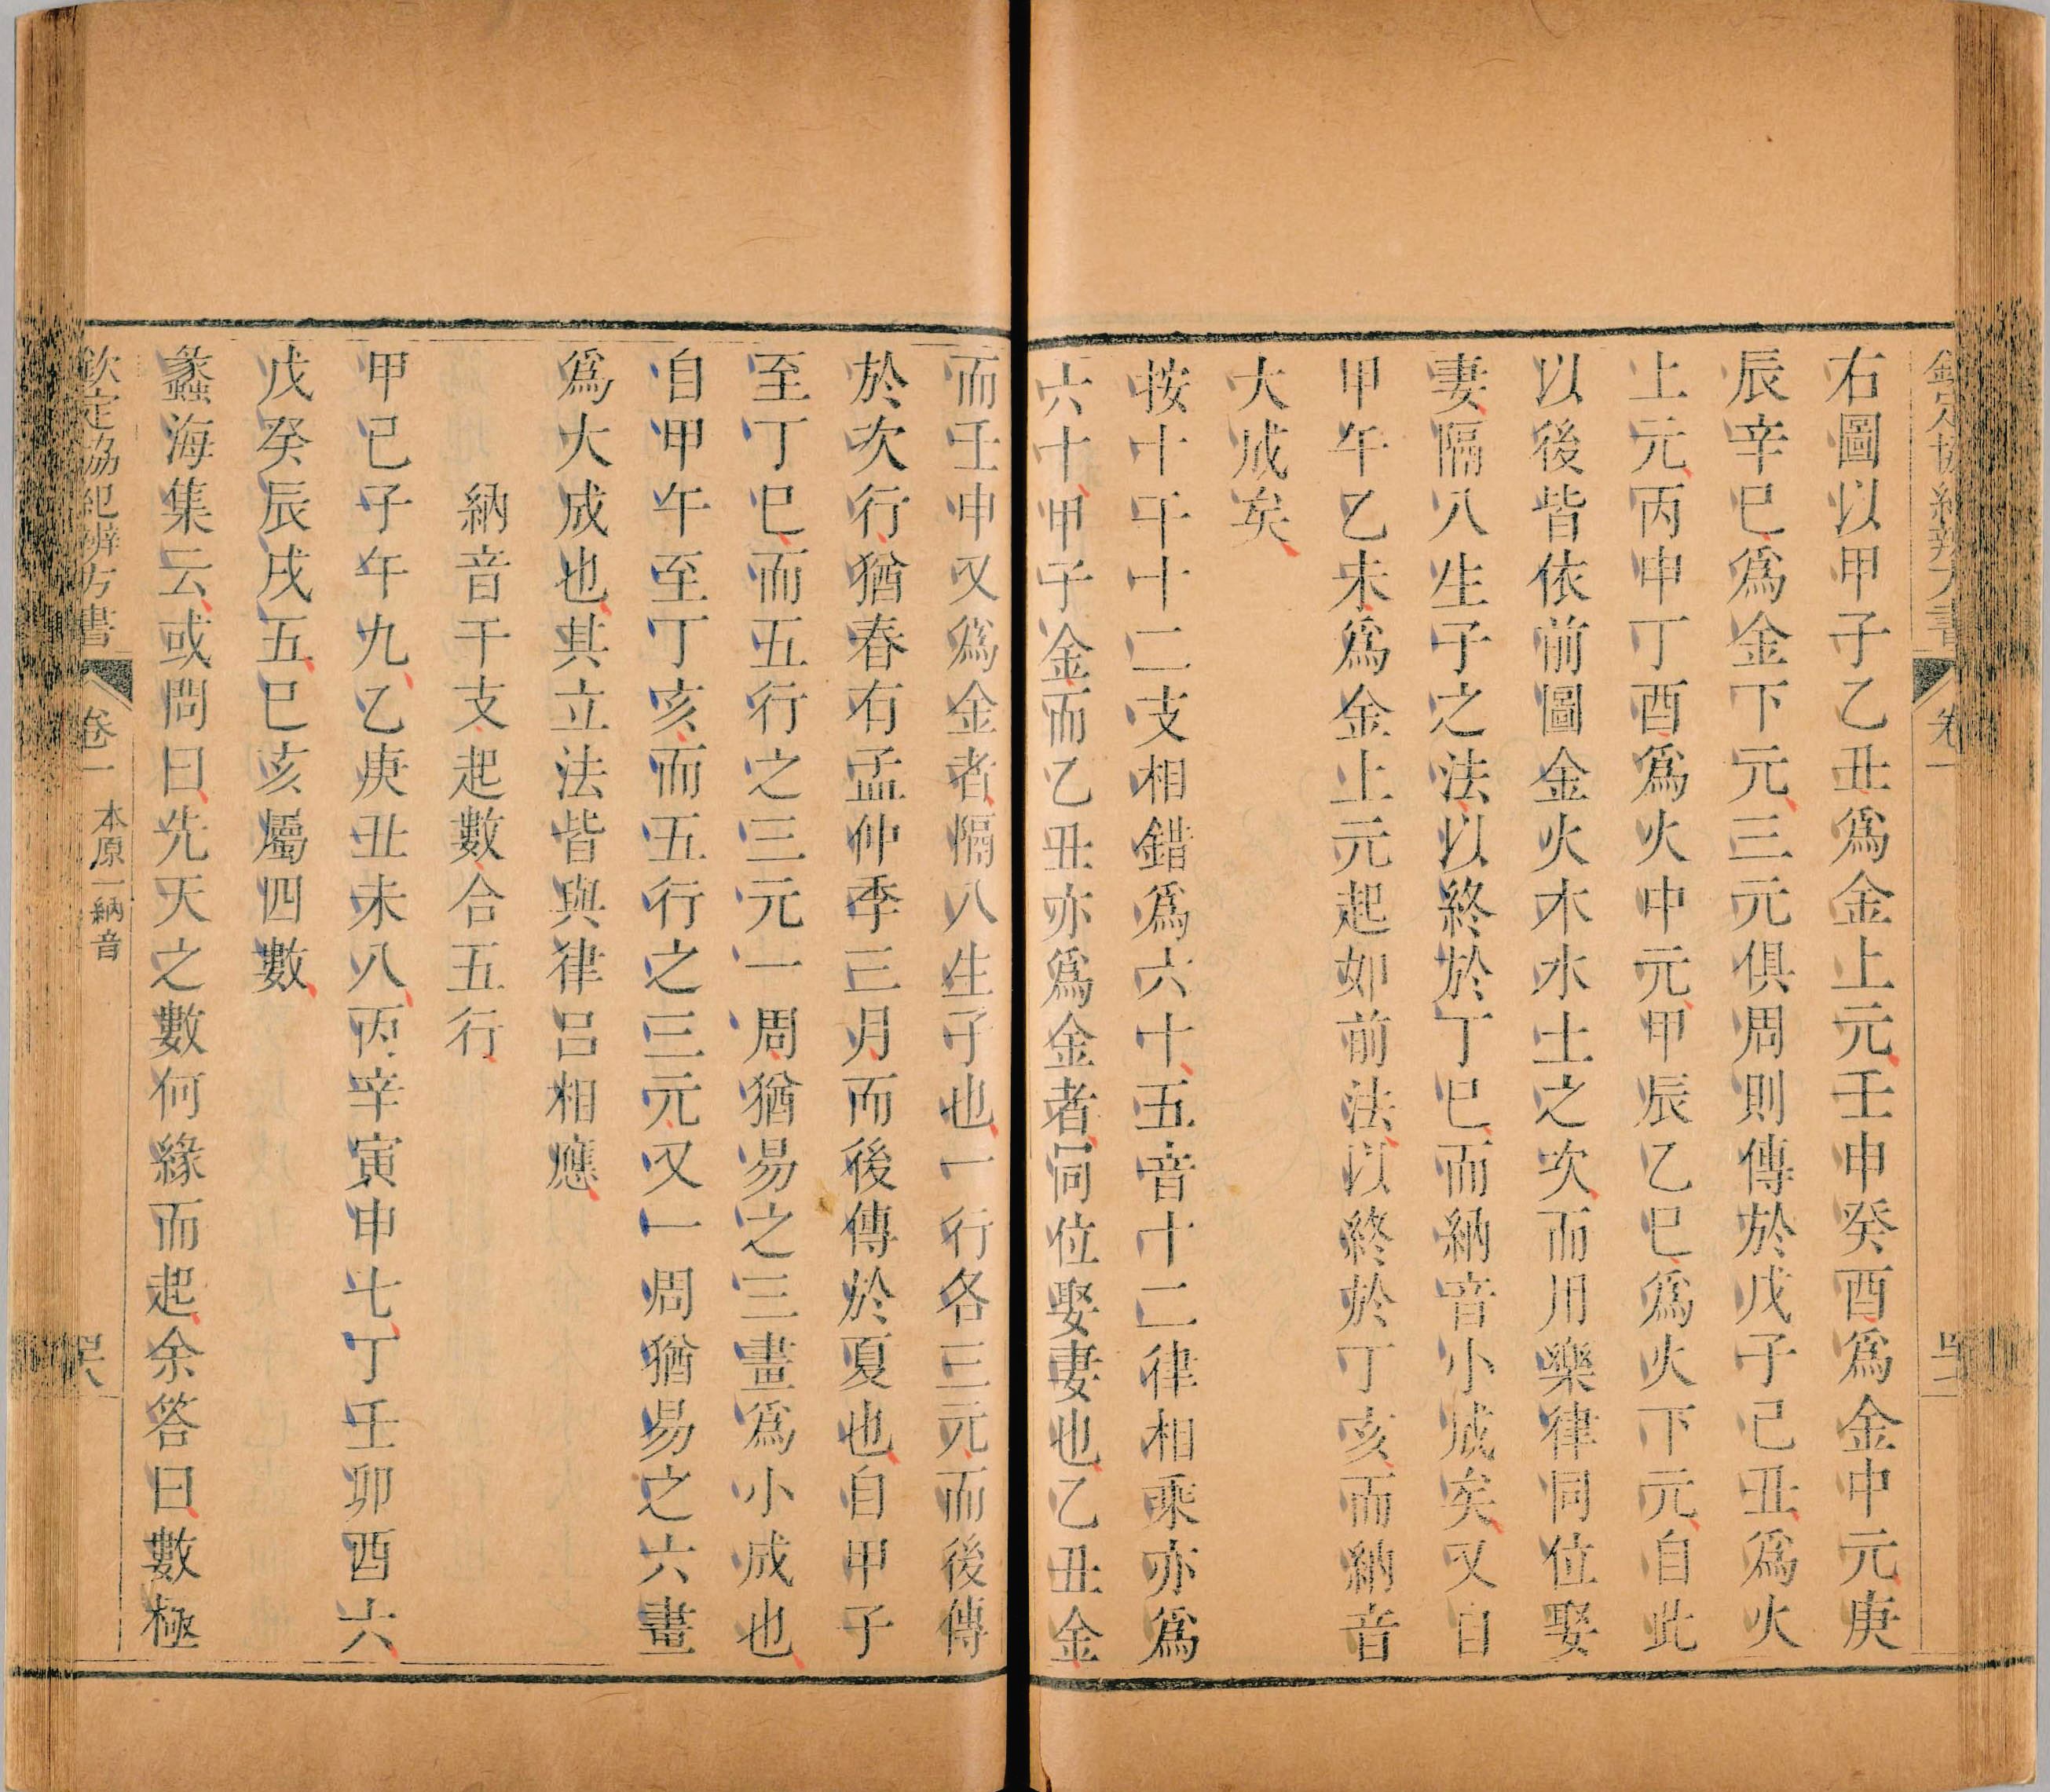 右圖以甲子乙丑爲金上元壬申癸酉爲金中元庚
辰辛巳爲金下元三元俱周則傳於戊子己丑爲火
上元丙申丁酉爲火中元甲辰乙巳爲火下元自此
以後皆依前圖金火木水土之次而用樂律同位娶
妻隔八生子之法以終於丁巳而納音小成矣又自
甲午乙未爲金上元起如前法以終於丁亥而納音
大成矣
按十干十二支相錯爲六十五音十二律相乘亦爲
六十甲子金而乙丑亦爲金者同位娶妻也乙丑金
而壬申又爲金者隔八生子也一行各三元而後傳
於次行猶春有孟仲季三月而後傳於夏也自甲子
至丁巳而五行之三元一周猶易之三畫爲小成也
自甲午至丁亥而五行之三元又一周猶易之六畫
爲大成也其立法皆與律呂相應
納音干支起數合五行
甲己子午九乙庚丑未八丙辛寅申七丁壬卯酉六
戊癸辰戌五巳亥屬四數
蠡海集云或問曰先天之數何緣而起余答曰數極
欽定協紀辨方書 卷一 本原一納音